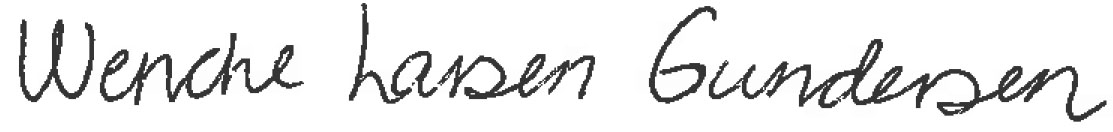 Wenche Larsen Gundersen